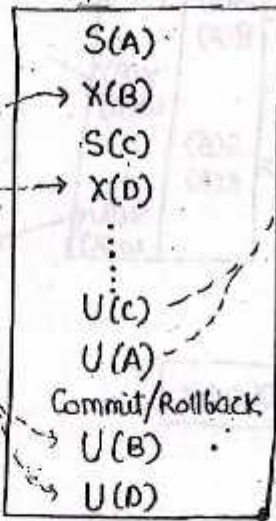 S(A)
X(B)
S(C)
X(D)
U(C)
U(A)
Commit/Rollback
U(B)
U(D)